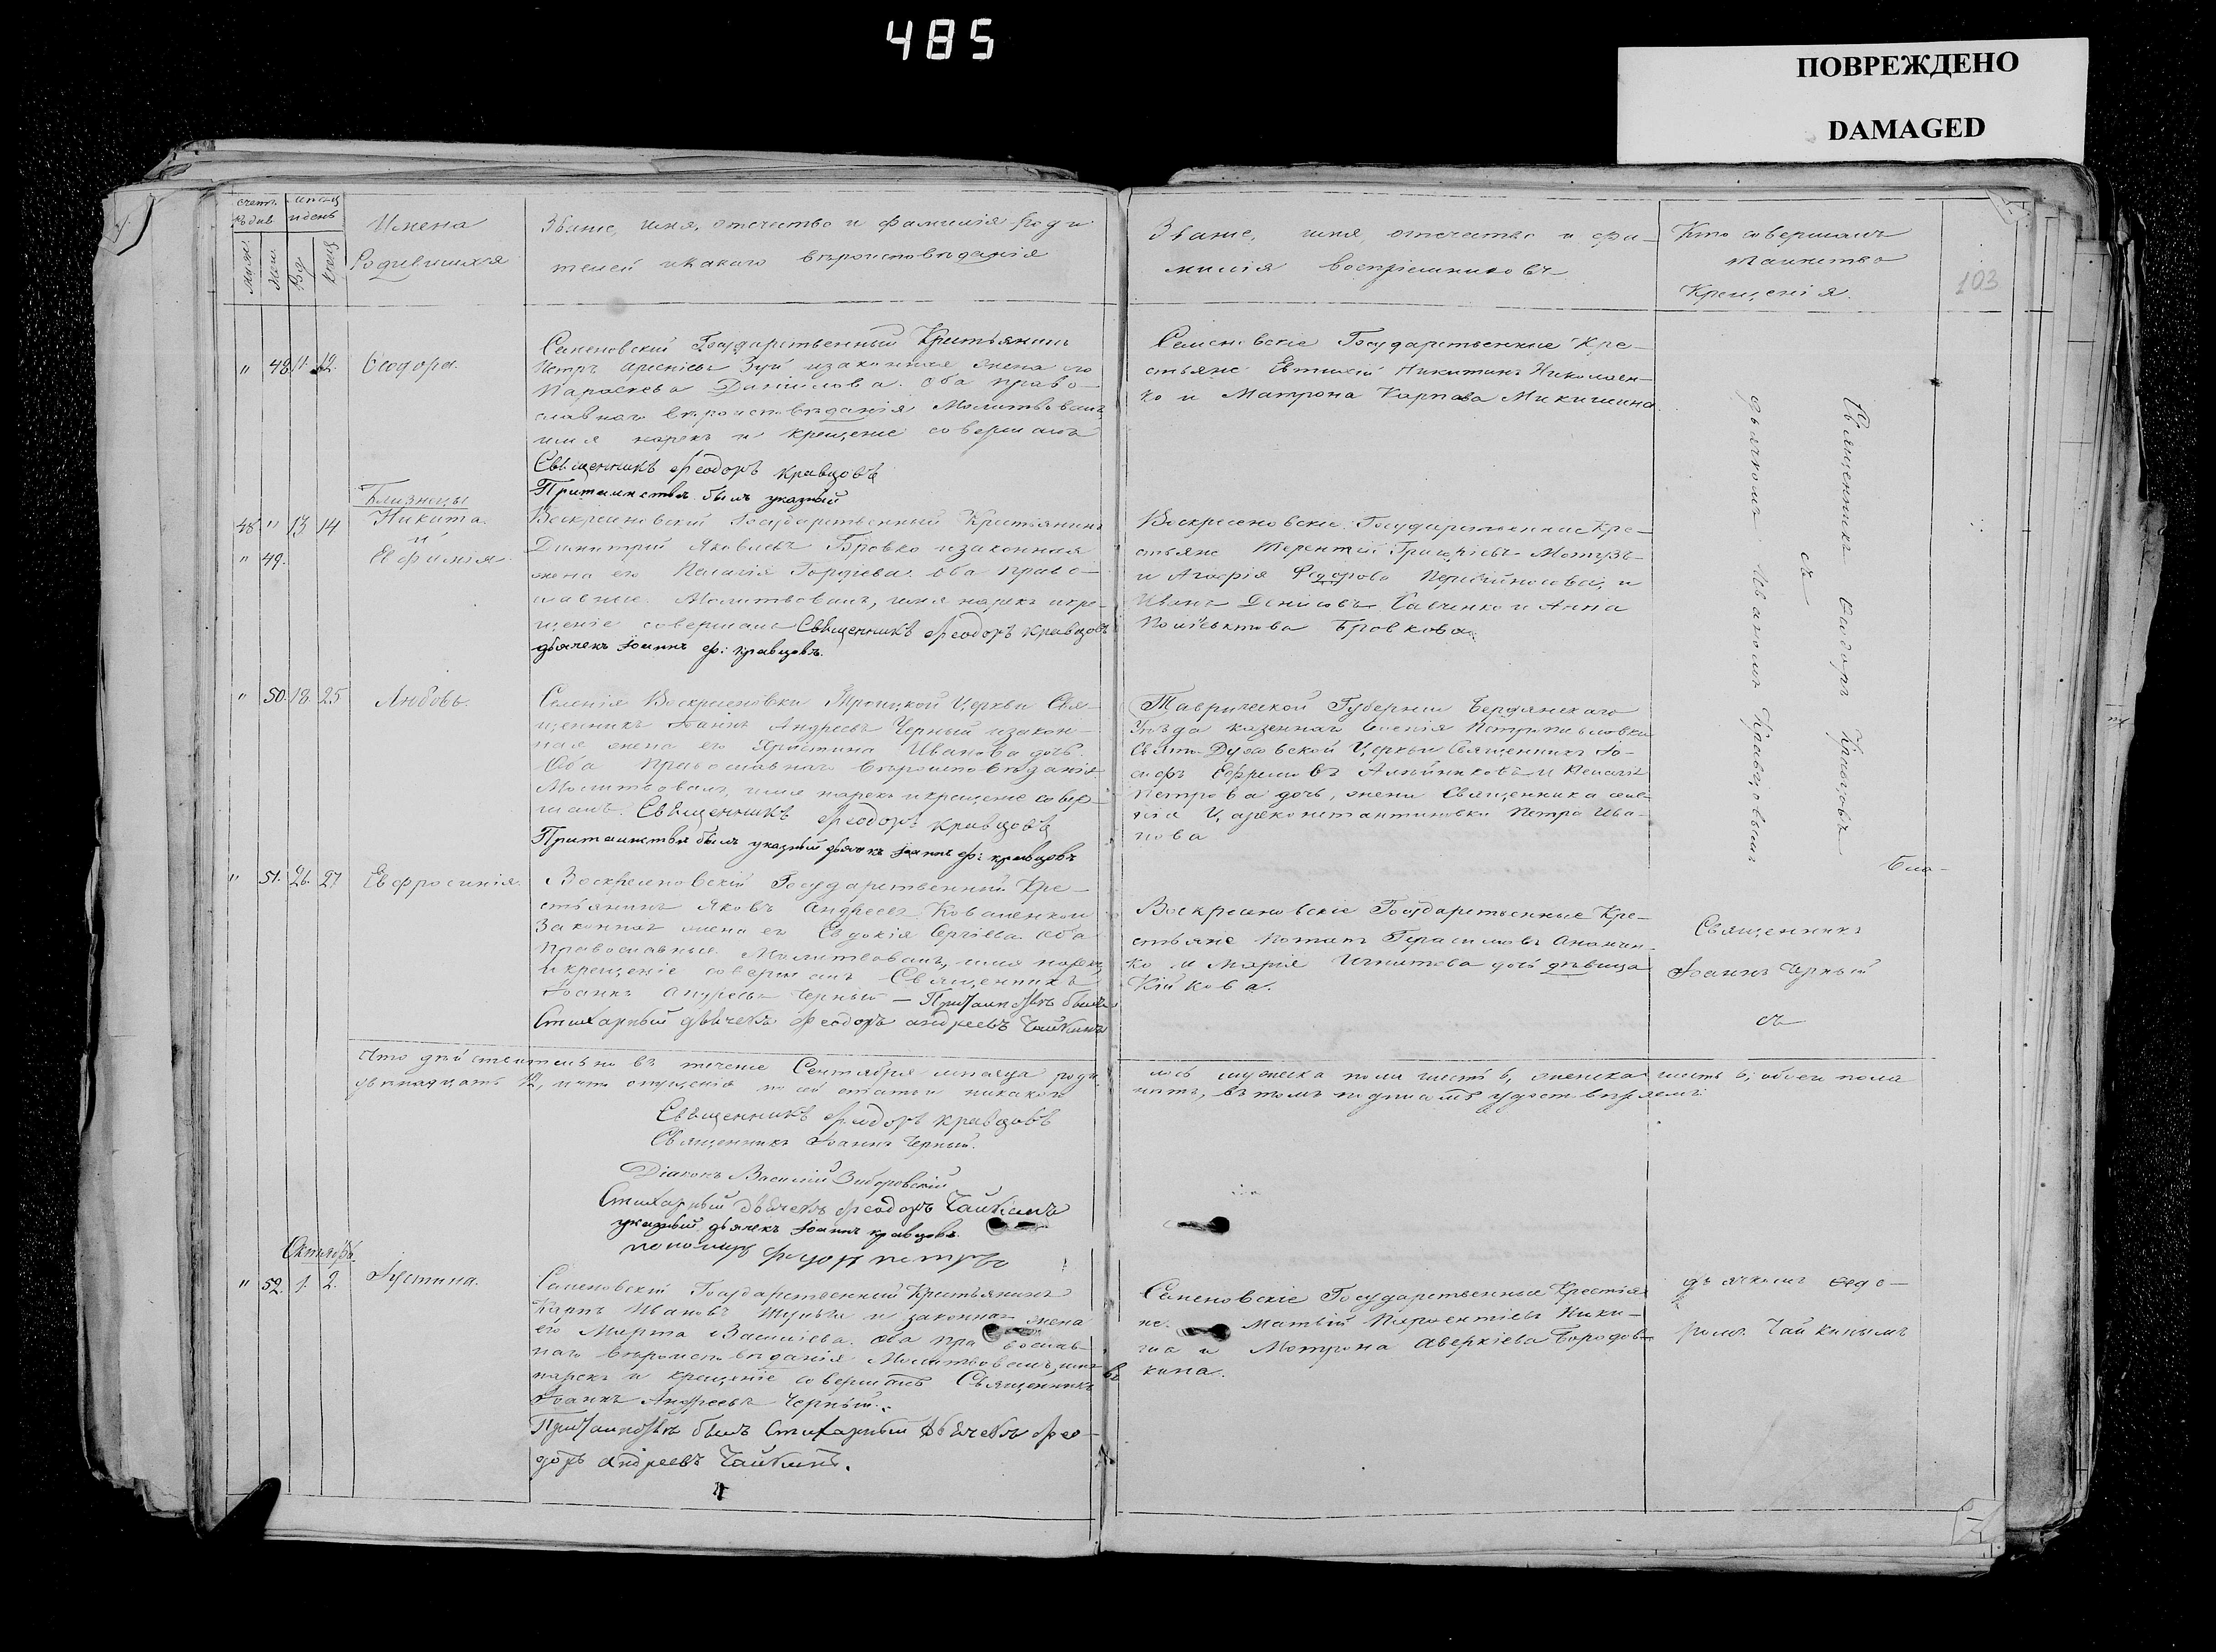 485
ПОВРЕЖДЕНО
DAMAGED
счетъ
мѣсяц
и день
муж.
жен.
Рд
Крещ
Имена
Родившихся
Званіе, имя, отечество и фамилія роди
телей и какого вѣроисповѣданія
Званіе, имя, отечество и фа-
милія воспріемниковъ
Кто совершалъ
таинство
Крещенія.
103
" 48 11. 12. Ѳеодора.
Семеновскій Государственный Крестьянинъ
Петръ Арсеніевъ Зуй и законная жена его
Параскева Даниилова. Оба право-
славнаго вѣроисповѣданія Молитвовалъ,
имя нарекъ и крещеніе совершалъ
Священникъ Феодоръ Кравцовъ
При таинствѣ былъ указный
Семеновскіе Государственные Кре-
стьяне Евтихій Никитинъ Николаен-
ко и Матрона Карпова Микишина
Близнецы
48 " 13 14 Никита.
и
" 49. Евфимія
Воскресеновскій Государственный Крестьянинъ
Димитрій Яковлевъ Бровко и законная
жена его Пелагія Гордіева. Оба право-
славные. Молитвовалъ, имя нарекъ и кре-
щеніе совершалъ Священникъ Феодоръ Кравцовъ
дьячекъ Іоаннъ Ф: Кравцовъ.
Воскресеновскіе Государственные Кре-
стьяне Терентій Григоріевъ
и Агафія Федорова и
Иванъ Денисовъ Савченко и Анна
Бровкова.
" 50. 18. 25 Любовь.
Селенія Воскресеновки Троицкой Церкви Свя-
щенникъ Іоаннъ Андреевъ Черный и закон-
ная жена его Христина Иванова дочь
Оба Православнаго вѣроисповѣданія.
Молитвовалъ, имя нарекъ и крещеніе совер-
шалъ. Священникъ Феодоръ Кравцовъ
При таинствѣ былъ указный дьячекъ Іоаннъ Ф: Кравцовъ
Таврической Губерніи Бердянскаго
Уѣзда казеннаго селенія
Свято-Духовской Церкви Священникъ Іо-
сифъ Ефремовъ Алейниковъ и Пелагія
Петрова дочь, жена Священника селе-
нія Цареконстантиновки Петра Ива-
нова
Священникъ Ѳеодоръ Кравцовъ
съ
дьячкомъ Иваномъ Кравцовымъ
" 51. 26. 27 Евфросинія.
Воскресеновскій Государственный Кре-
стьянинъ Яковъ Андреевъ Коваленко и
Законная жена его Евдокія Сергіева. Оба
Православные. Молитвовалъ, имя нарекъ
и крещеніе совершалъ Священникъ
Іоаннъ Андреевъ Черный – При таинствѣ былъ
Стихарный дьячекъ Феодоръ Андреевъ Чайкинъ
Воскресеновскіе Государственные Кре-
стьяне Потапъ Герасимовъ Ананьин-
ко и Марія Игнатова дочь дѣвица
Кійкова.
Священникъ
Іоаннъ Черный
съ
Что дѣйствительно въ теченіе Сентября мѣсяца роди-
лось мужеска пола шесть 6, женска шесть 6, обоего пола
двѣнадцать 12, и что опущенія по сей статьи никакого
нѣтъ, въ томъ подписомъ удостовѣряемъ:
Священникъ Феодоръ Кравцовъ
Священникъ Іоаннъ Черный.
Діаконъ Василій
Стихарный дьячекъ Феодоръ Чайкинъ
указный дьячекъ Іоаннъ Кравцовъ.
пономарь
Октябрь
" 52. 1. 2. Іустина.
Семеновскій Государственный Крестьянинъ
Карпъ Ивановъ и законная жена
его Марта Васильева. Оба православ-
наго вѣроисповѣданія Молитвовалъ, имя
нарекъ и крещеніе совершалъ Священникъ
Іоаннъ Андреевъ Черный.
При таинствѣ былъ Стихарный дьячекъ Фео-
доръ Андреевъ Чайкинъ.
Семеновскіе Государственные Крестья-
не. Матвій Парѳентіевъ Ники-
и Мотрона Аверкіева Бородав-
кина.
дьячкомъ Ѳедо-
ромъ Чайкинымъ